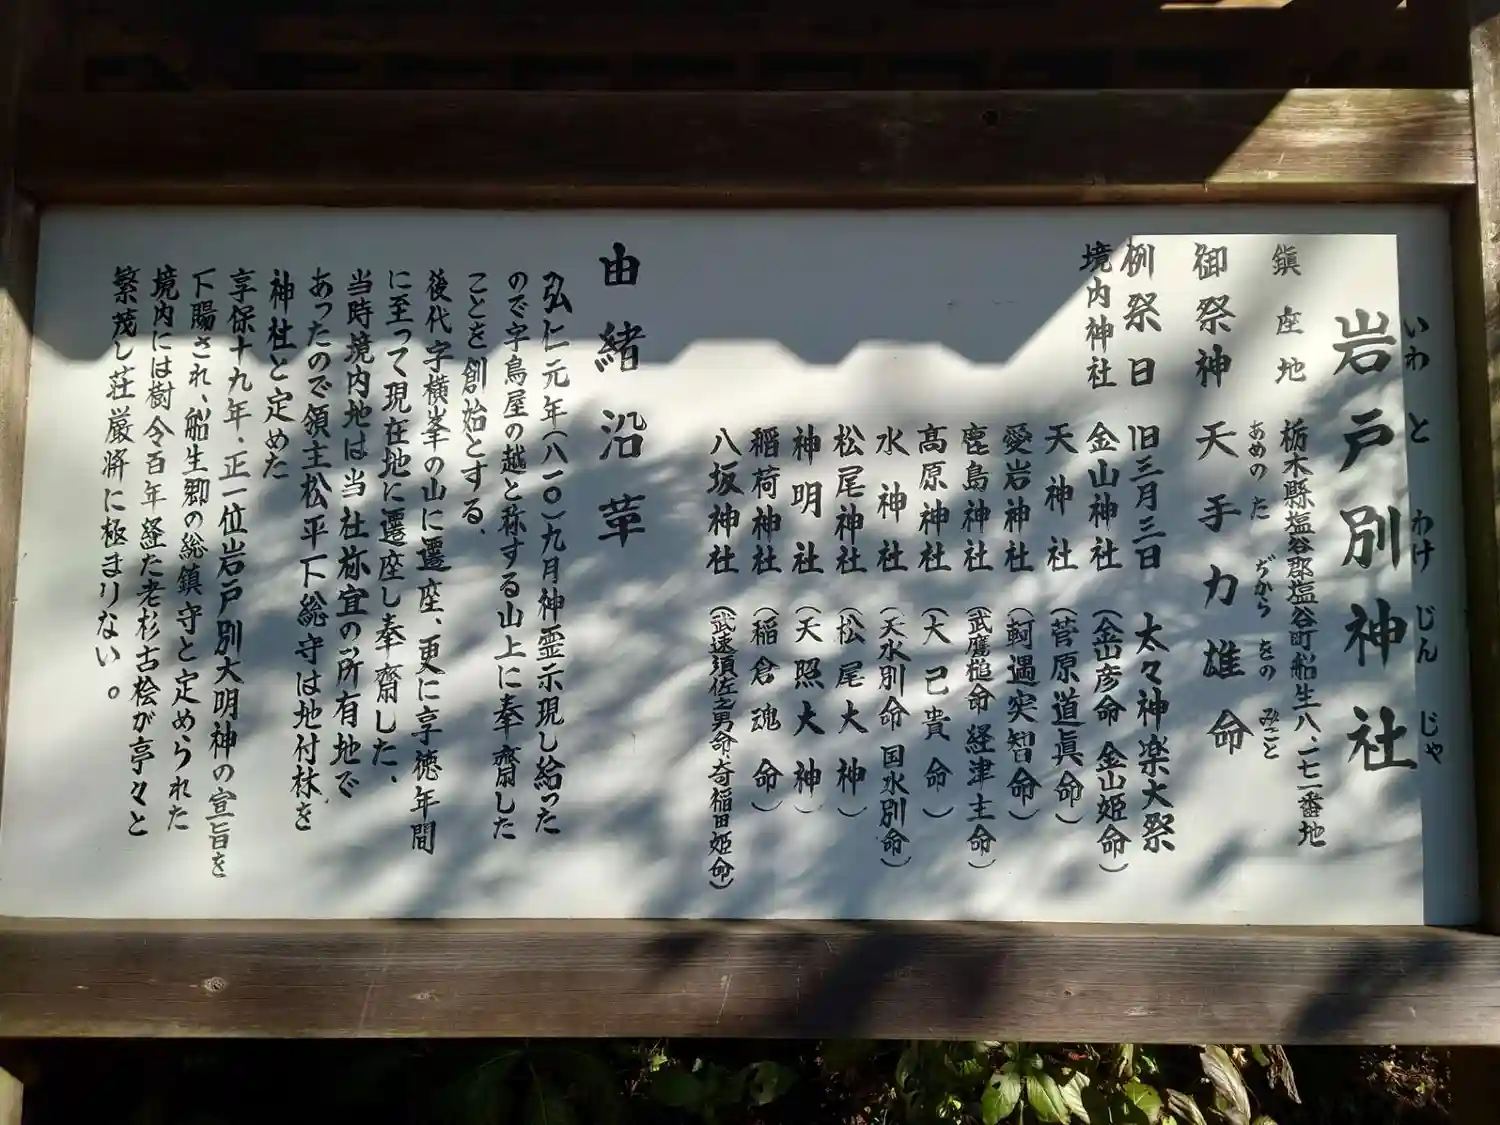 岩戸別神社
いわとわけじんじゃ
鎮座地 栃木縣塩谷郡塩谷町船生八、一七一番地
御祭神 天手力雄命
あめのた ぢから をの みこと
例祭日 旧三月三日 太々神楽大祭
境内神社 金山神社(金山彦命 金山姫命)
天神社(菅原道眞命)
愛岩神社(軻遇突智命)
鹿島神社(武鷹槌命 経津主命)
高原神社(大己貴命)
水神社(天水別命 国水別命)
松尾神社(松尾大神)
神明社(天照大神)
稲荷神社(稲倉魂命)
八坂神社(武速須佐之男命、奇稲田姫命)
由緒沿革
弘仁元年(八一〇)九月神霊示現し給った
ので字鳥屋の越と称する山上に奉齋した
ことを創始とする、
後代字横峯の山に遷座、更に享徳年間
に至って現在地に遷座し奉齋した、
当時境内地は当社祢宜の所有地で
あったので領主松平下総守は地付林を
神社と定めた
享保十九年、正一位岩戸別大明神の宣旨を
下賜され、船生郷の総鎮守と定められた
境内には樹令百年経た老杉古桧が亭々と
繁茂し荘厳将に極まりない。